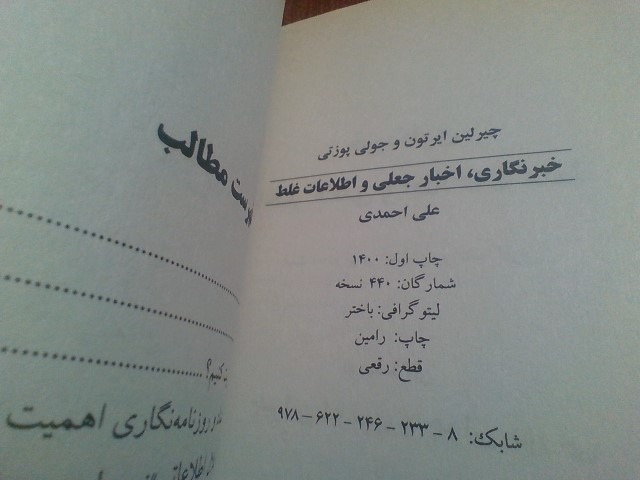 چیرلین ایرتون و جولی پوزتی
خبرنگاری، اخبار جعلی و اطلاعات غلط
علی احمدی
چاپ اول: ۱۴۰۰
شمارگان: ۴۴۰ نسخه
لیتوگرافی: باختر
چاپ: رامین
قطع: رقعی
شابک: ۸ – ۲۳۳ – ۲۴۶ – ۶۲۲ – ۹۷۸
مطالب
کنیم؟
روزنامه‌نگاری اهمیت